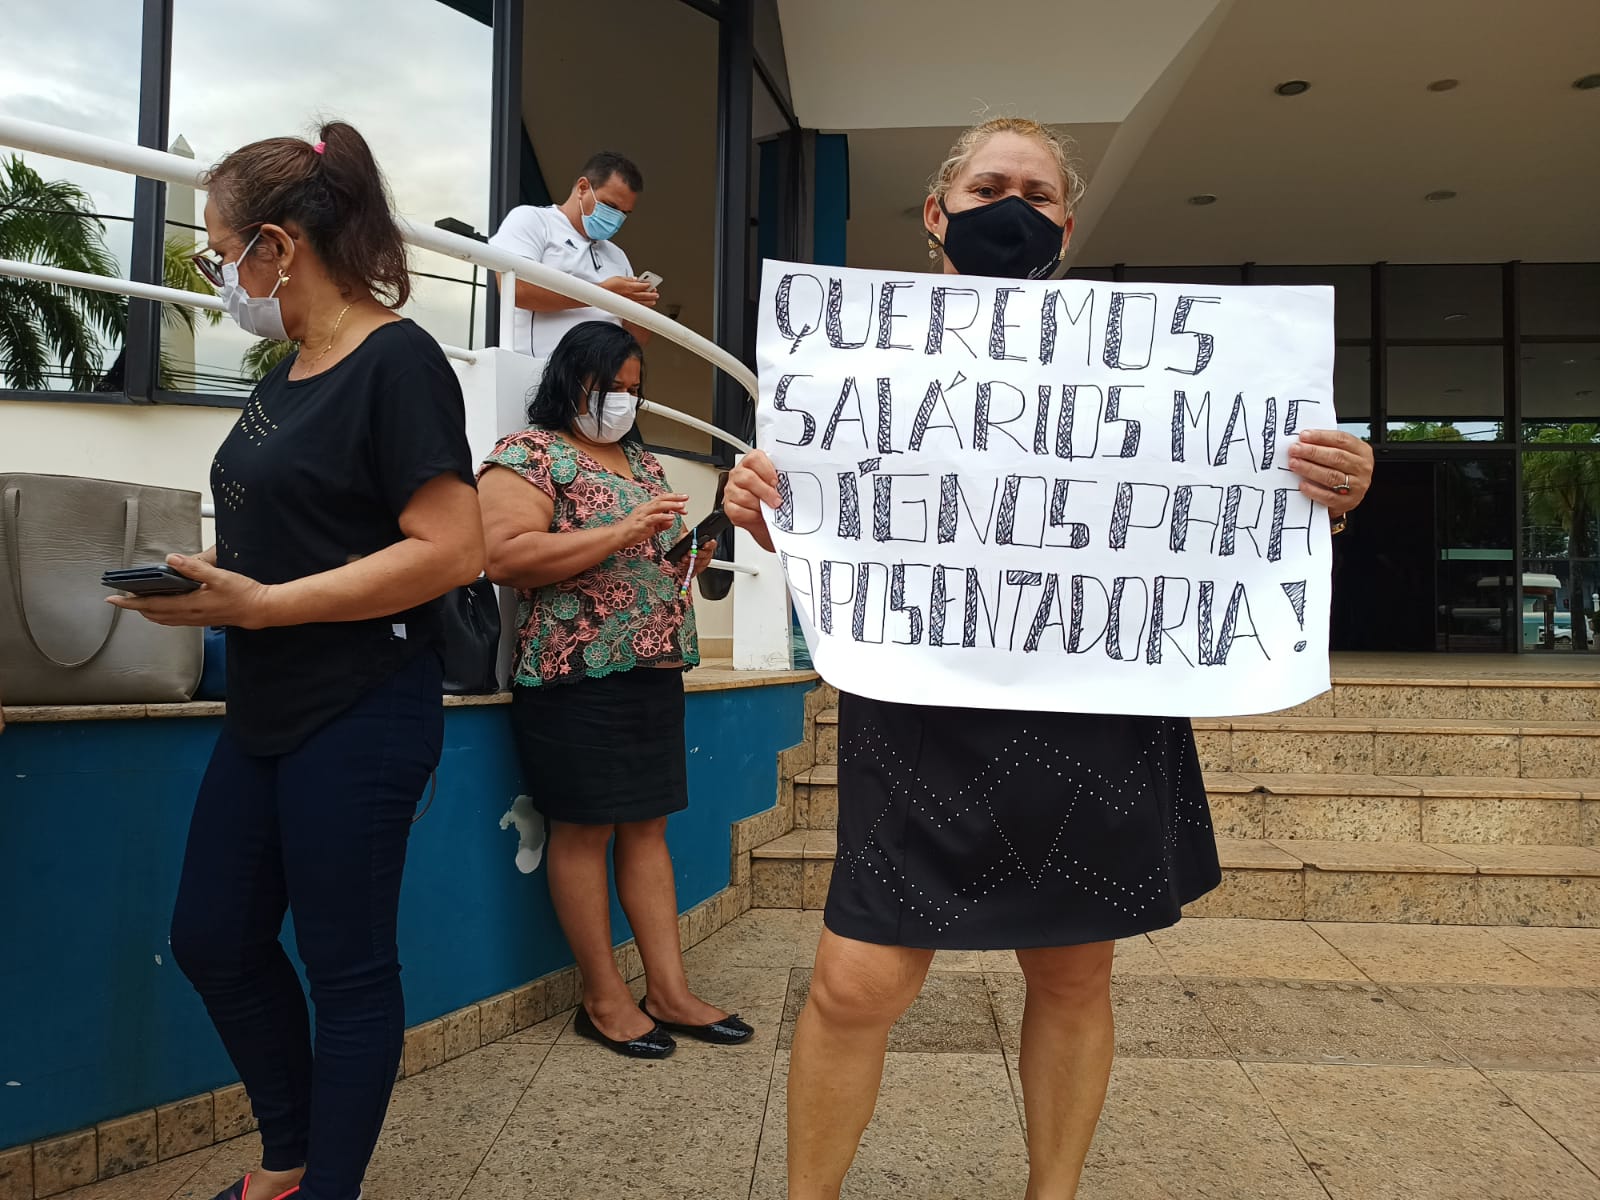 QUEREMOS
SALÁRIOS MAIS
DÍGNOS PARA
APOSENTADORIA!